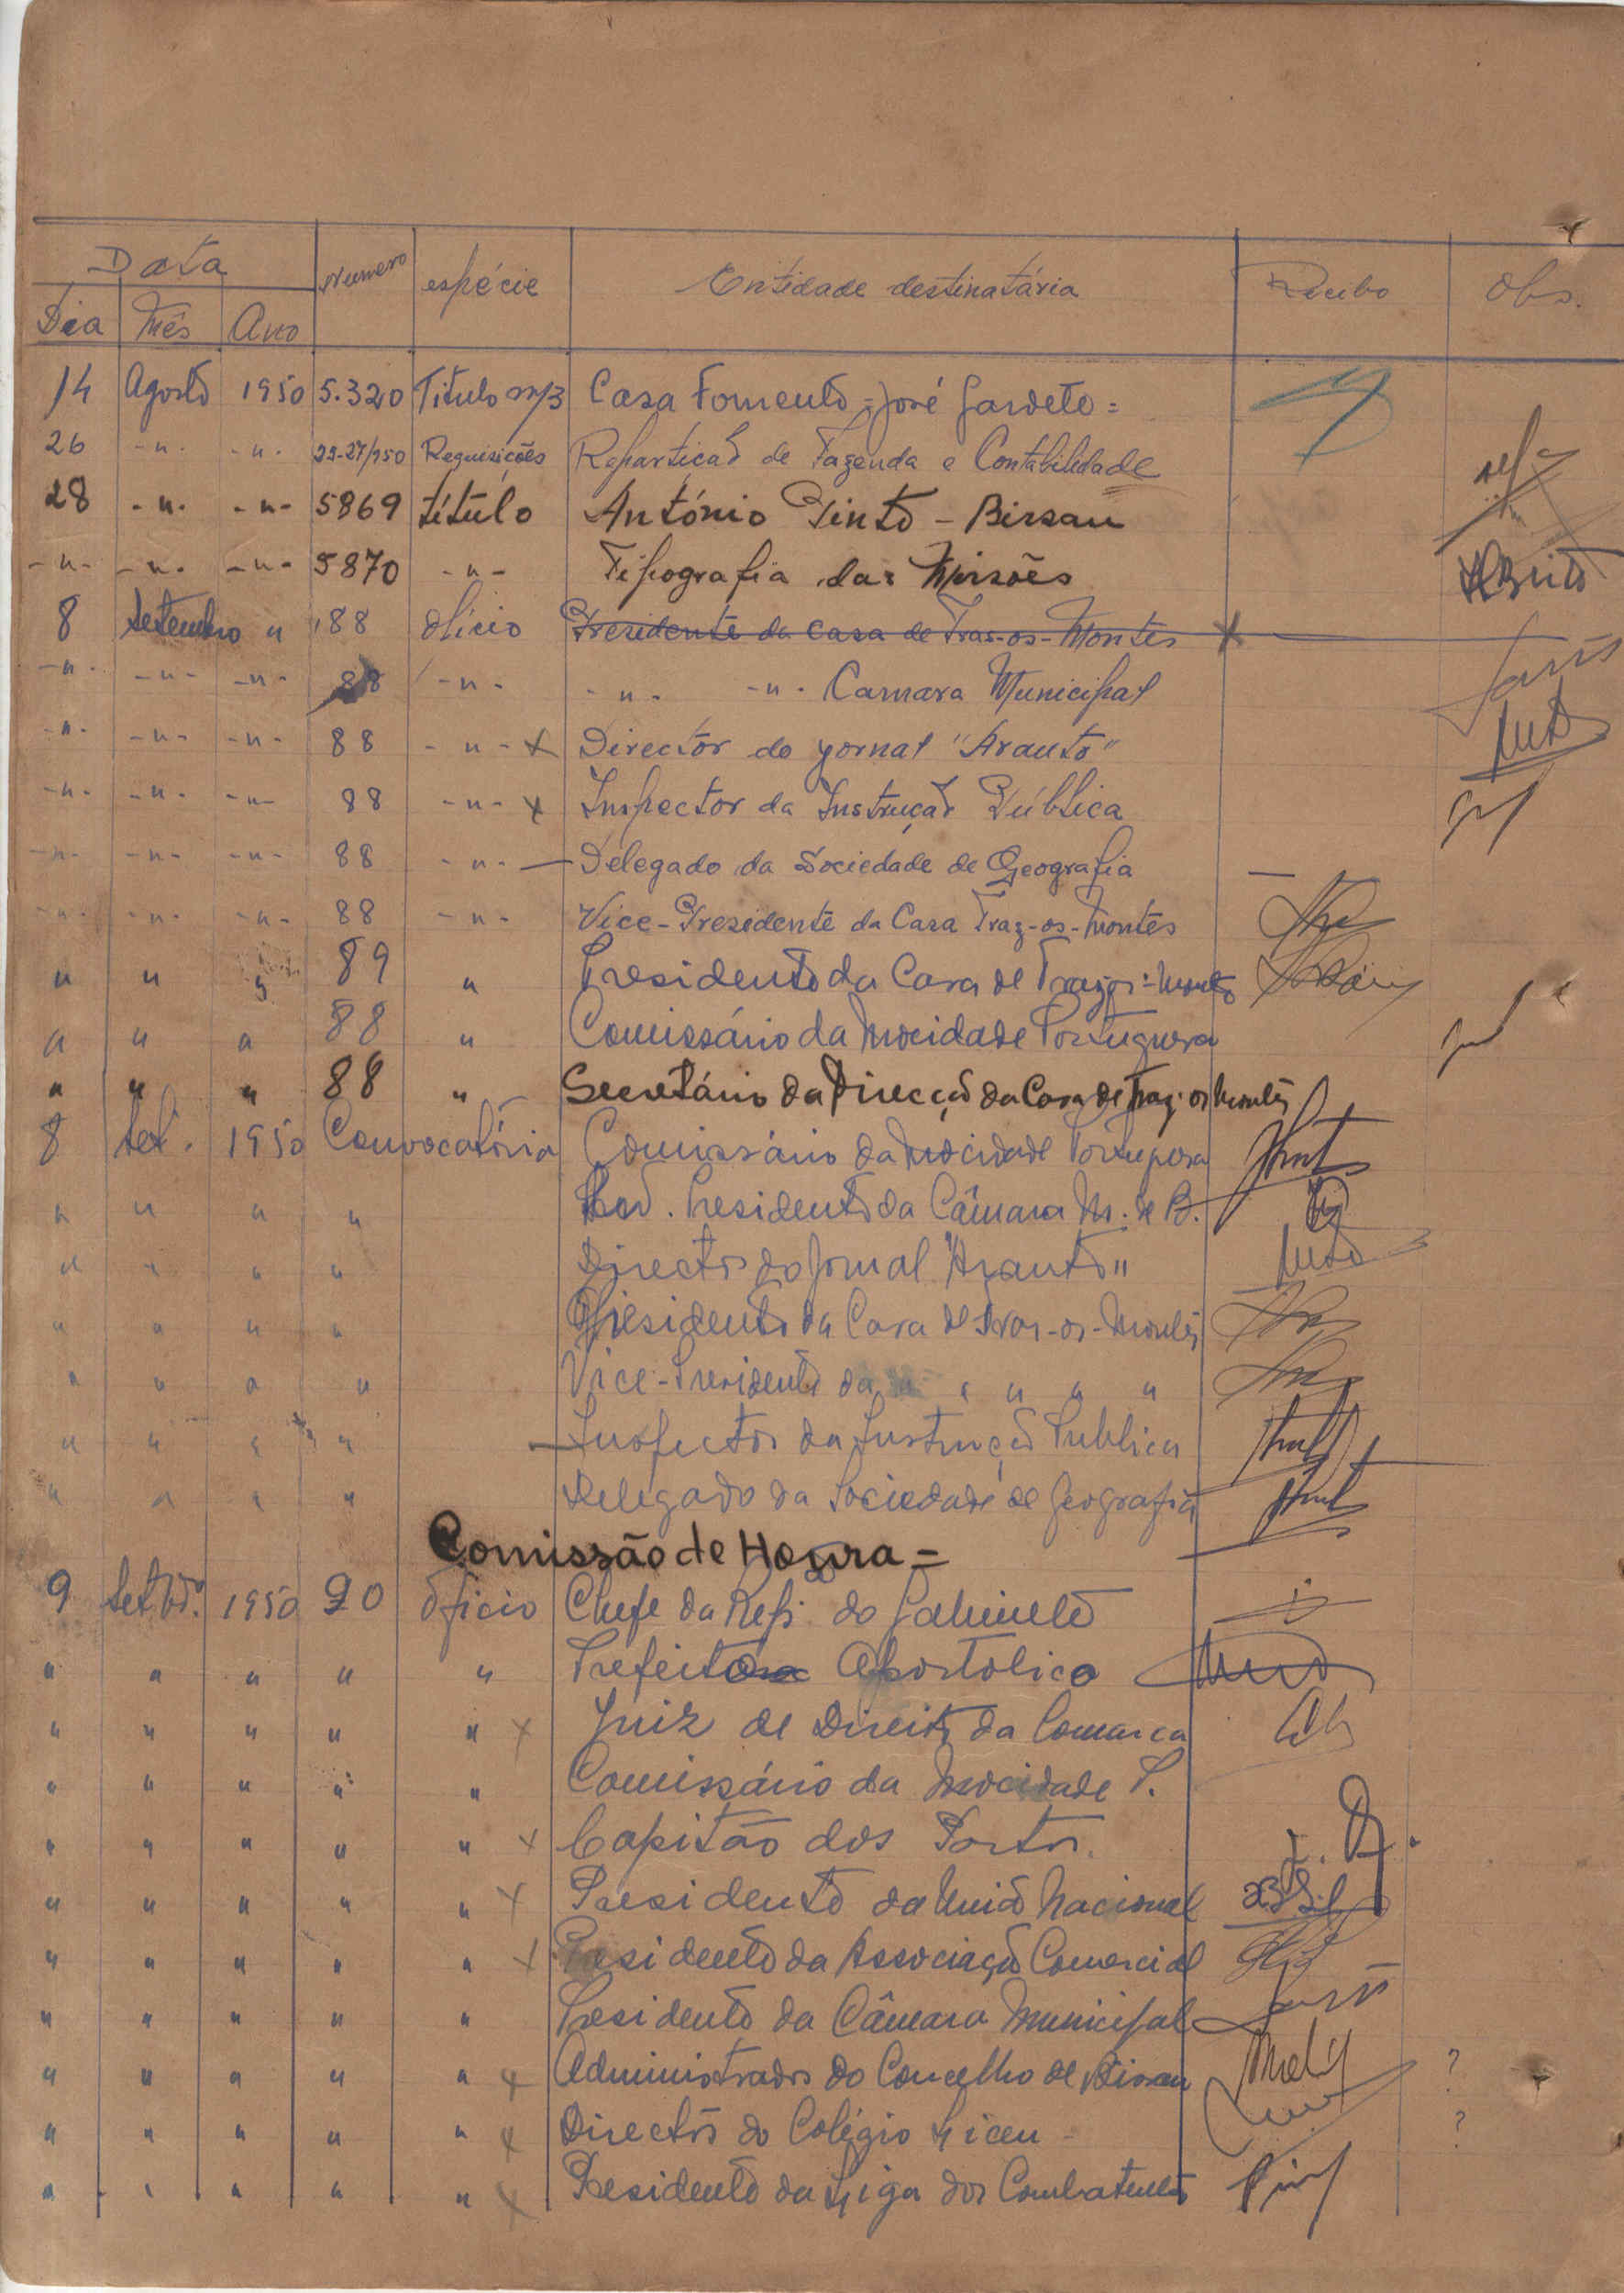 Data Numero espécie Entidade destinatária Recibo Obs.
Dia Mês Ano
14 Agosto 1950 5.320 Titulo m/3 Casa Fomento = José Gardete =
26 -"- -"- 25-27/950 Requisições Repartição de Fazenda e Contabilidade
28 -"- -"- 5869 título António Pinto - Bissau
-"- -"- -"- 5870 -"- Tipografia das Missões ABrito
8 Setembro " 88 Ofício Presidente da Casa de Tras-os-Montes x
-"- -"- -"- 88 -"- -"- -"- Camara Municipal
-"- -"- -"- 88 -"- x Director do jornal "Arauto"
-"- -"- -"- 88 -"- x Inspector da Instrução Pública
-"- -"- -"- 88 -"- — Delegado da Sociedade de Geografia —
-"- -"- -"- 88 -"- Vice-Presidente da Casa Traz-os-Montes
" " " 89 " Presidente da Casa de Trazos-Montes
" " " 88 " Comissário da Mocidade Portuguesa
" " " 88 " Secretário da Direcção da Casa de Traz-os Montes
8 Set. 1950 Convocatória Comissário da Mocidade Portuguesa
" " " " Presidente da Câmara M. de B.
" " " " Director do Jornal "Arauto"
" " " " Presidente da Casa de Tras-os-Montes
" " " " Vice-Presidente da " " " "
" " " " — Inspector da Instrução Publica
" " " " Delegado da Sociedade de Geografia
Comissão de Honra =
9 Setbr.º 1950 90 Ofício Chefe da Rep. do Gabinete
" " " " " Prefeito Apostolico
" " " " " x Juiz de Direito da Comarca
" " " " " Comissário da Mocidade P.
" " " " " x Capitão dos Portos.
" " " " " x Presidente da União Nacional
" " " " " x Presidente da Associação Comercial
" " " " " Presidente da Câmara Municipal
" " " " " x Administrador do Concelho de Bissau ?
" " " " " x Director do Colégio Liceu - ?
" " " " " x Presidente da Liga dos Combatentes